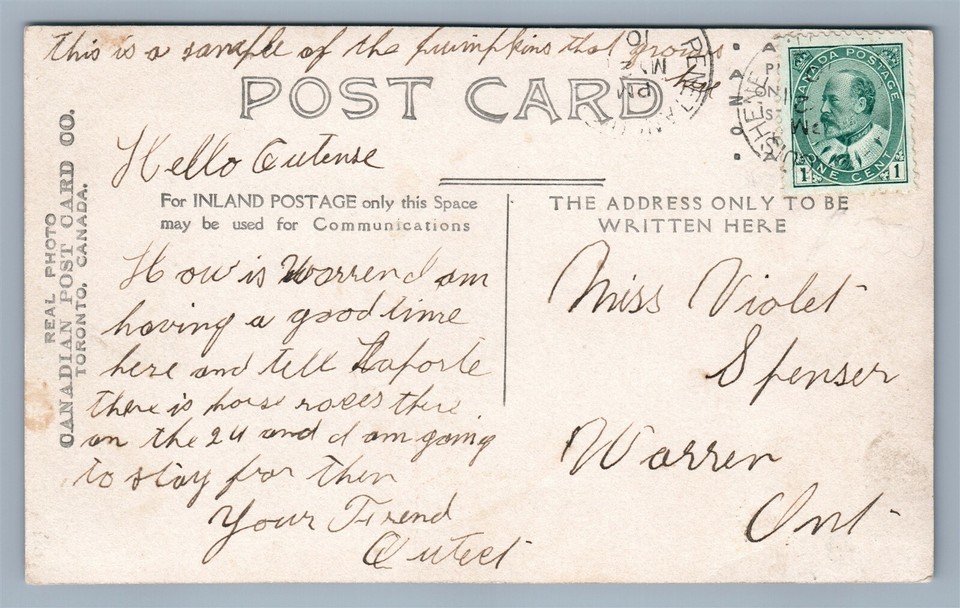 this is a sample of the pumpkins that grows
here
POST CARD
Hello Cutense
For INLAND POSTAGE only this Space
may be used for Communications
THE ADDRESS ONLY TO BE
WRITTEN HERE
REAL PHOTO
CANADIAN POST CARD CO.
TORONTO, CANADA.
How is Warren I am
having a good time
here and tell Laporte
there is horse roces there
on the 24 and I am going
to stay for then
Your Friend
Cutect
Miss Violet
Spenser
Warren
Ont
CANADA POSTAGE
1 ONE CENT 1
PM